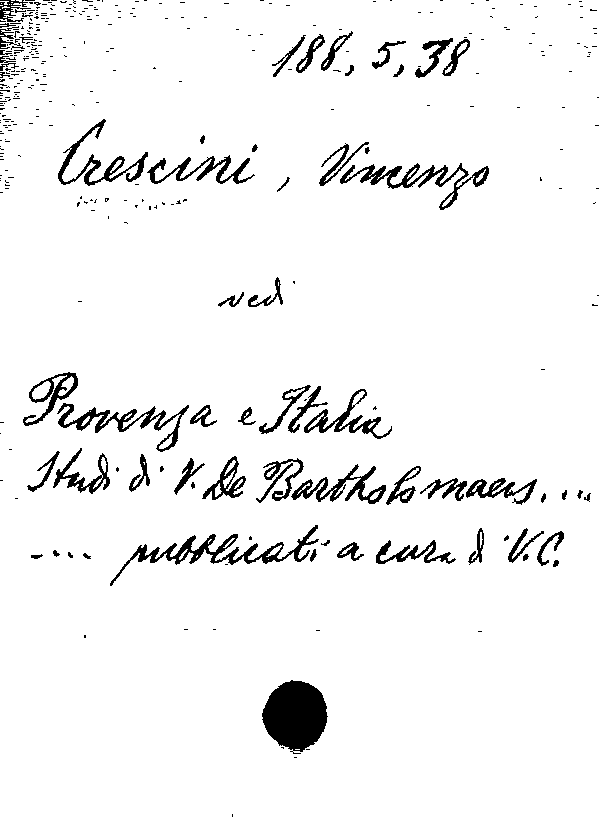 188, 5, 38
Crescini, Vincenzo
vedi
Provenza e Italia
Studi di V. De Bartholomaeis. ...
.... pubblicati a cura di V.C.